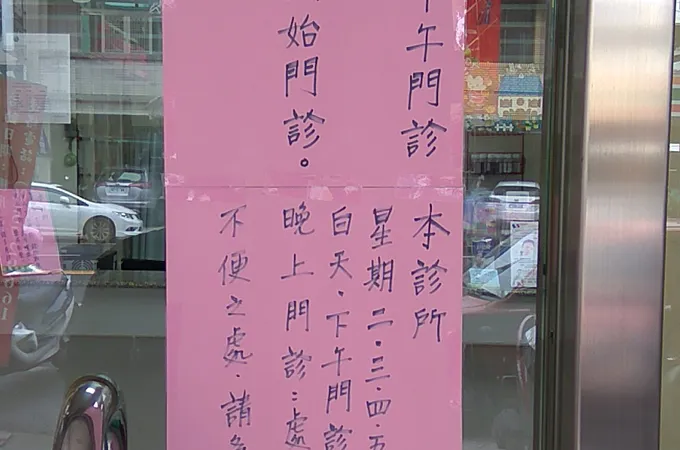 午門診
始門診。
本診所
星期二.三.四.五
白天、下午門診
晚上門診:處
不便之處.請